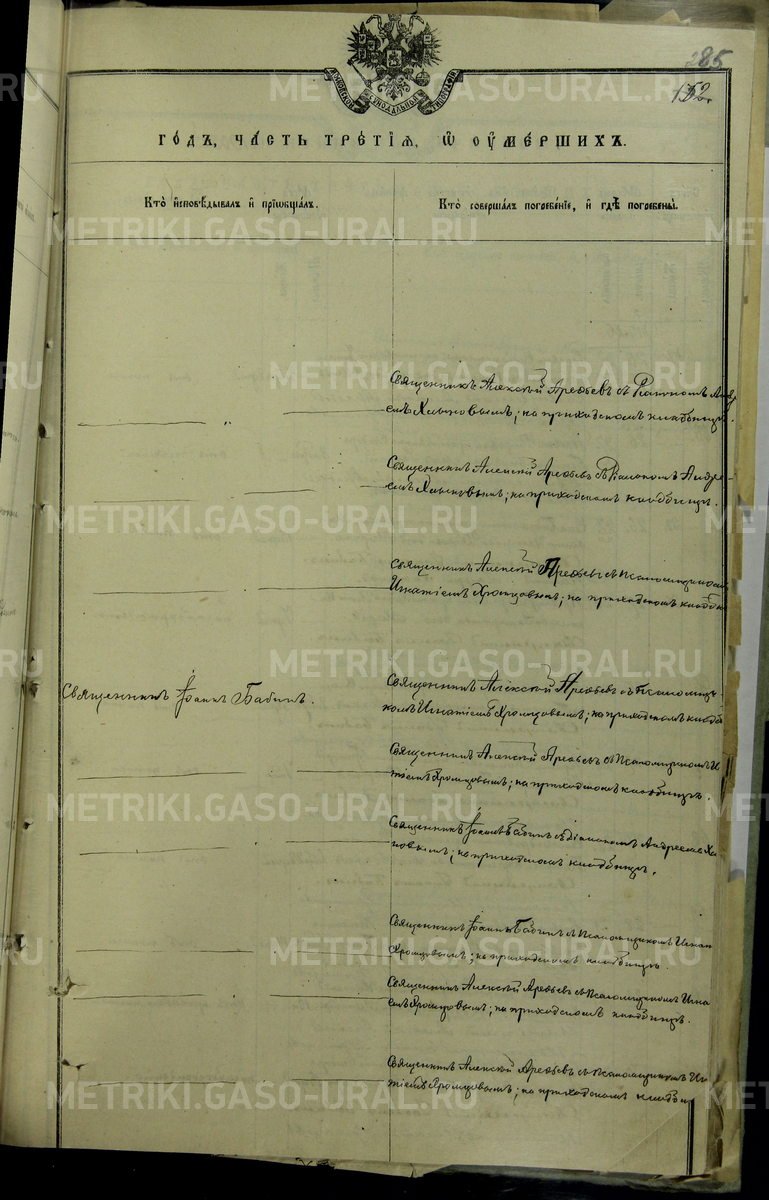 285
152
МОСКОВСКОЙ СѴНОДАЛЬНОЙ ТИПОГРАФІИ
ГО́ДЪ, ЧА́СТЬ ТРЕ́ТІѦ, Ѡ҆ ОУ҆МЕ́РШИХЪ.
Кто̀ и҆сповѣ́дывалъ и҆ прїѡбща́лъ.
Кто̀ соверша́лъ погребе́нїе, и҆ гдѣ̀ погребены̀.
Священникъ Алексѣй Арефьевъ съ Діакономъ Андре
емъ Хлыновымъ; на приходскомъ кладбищѣ.
Священникъ Алексѣй Арефьевъ съ Діакономъ Андре-
емъ Хлыновымъ; на приходскомъ кладбищѣ.
Священникъ Алексѣй Арефьевъ съ псаломщикомъ
Игнатіемъ Хромцовымъ; на приходскомъ кладби
Священникъ Іоаннъ Бабинъ.
Священникъ Алексѣй Арефьевъ съ Псаломщи-
комъ Игнатіемъ Хромцовымъ; на приходскомъ кладби
Священникъ Алексѣй Арефьевъ съ Псаломщикомъ Иг
тіемъ Хромцовымъ; на приходскомъ кладбищѣ.
Священникъ Іоаннъ Бабинъ съ Діакономъ Андреемъ Хлы
новымъ; на приходскомъ кладбищѣ.
Священникъ Іоаннъ Бабинъ съ Псаломщикомъ Игнат
Хромцовымъ; на приходскомъ кладбищѣ.
Священникъ Алексѣй Арефьевъ съ Псаломщикомъ Игна
емъ Хромцовымъ; на приходскомъ кладбищѣ.
Священникъ Алексѣй Арефьевъ съ псаломщикомъ Иг
тіемъ Хромцовымъ; на приходскомъ кладби
METRIKI.GASO-URAL.RU